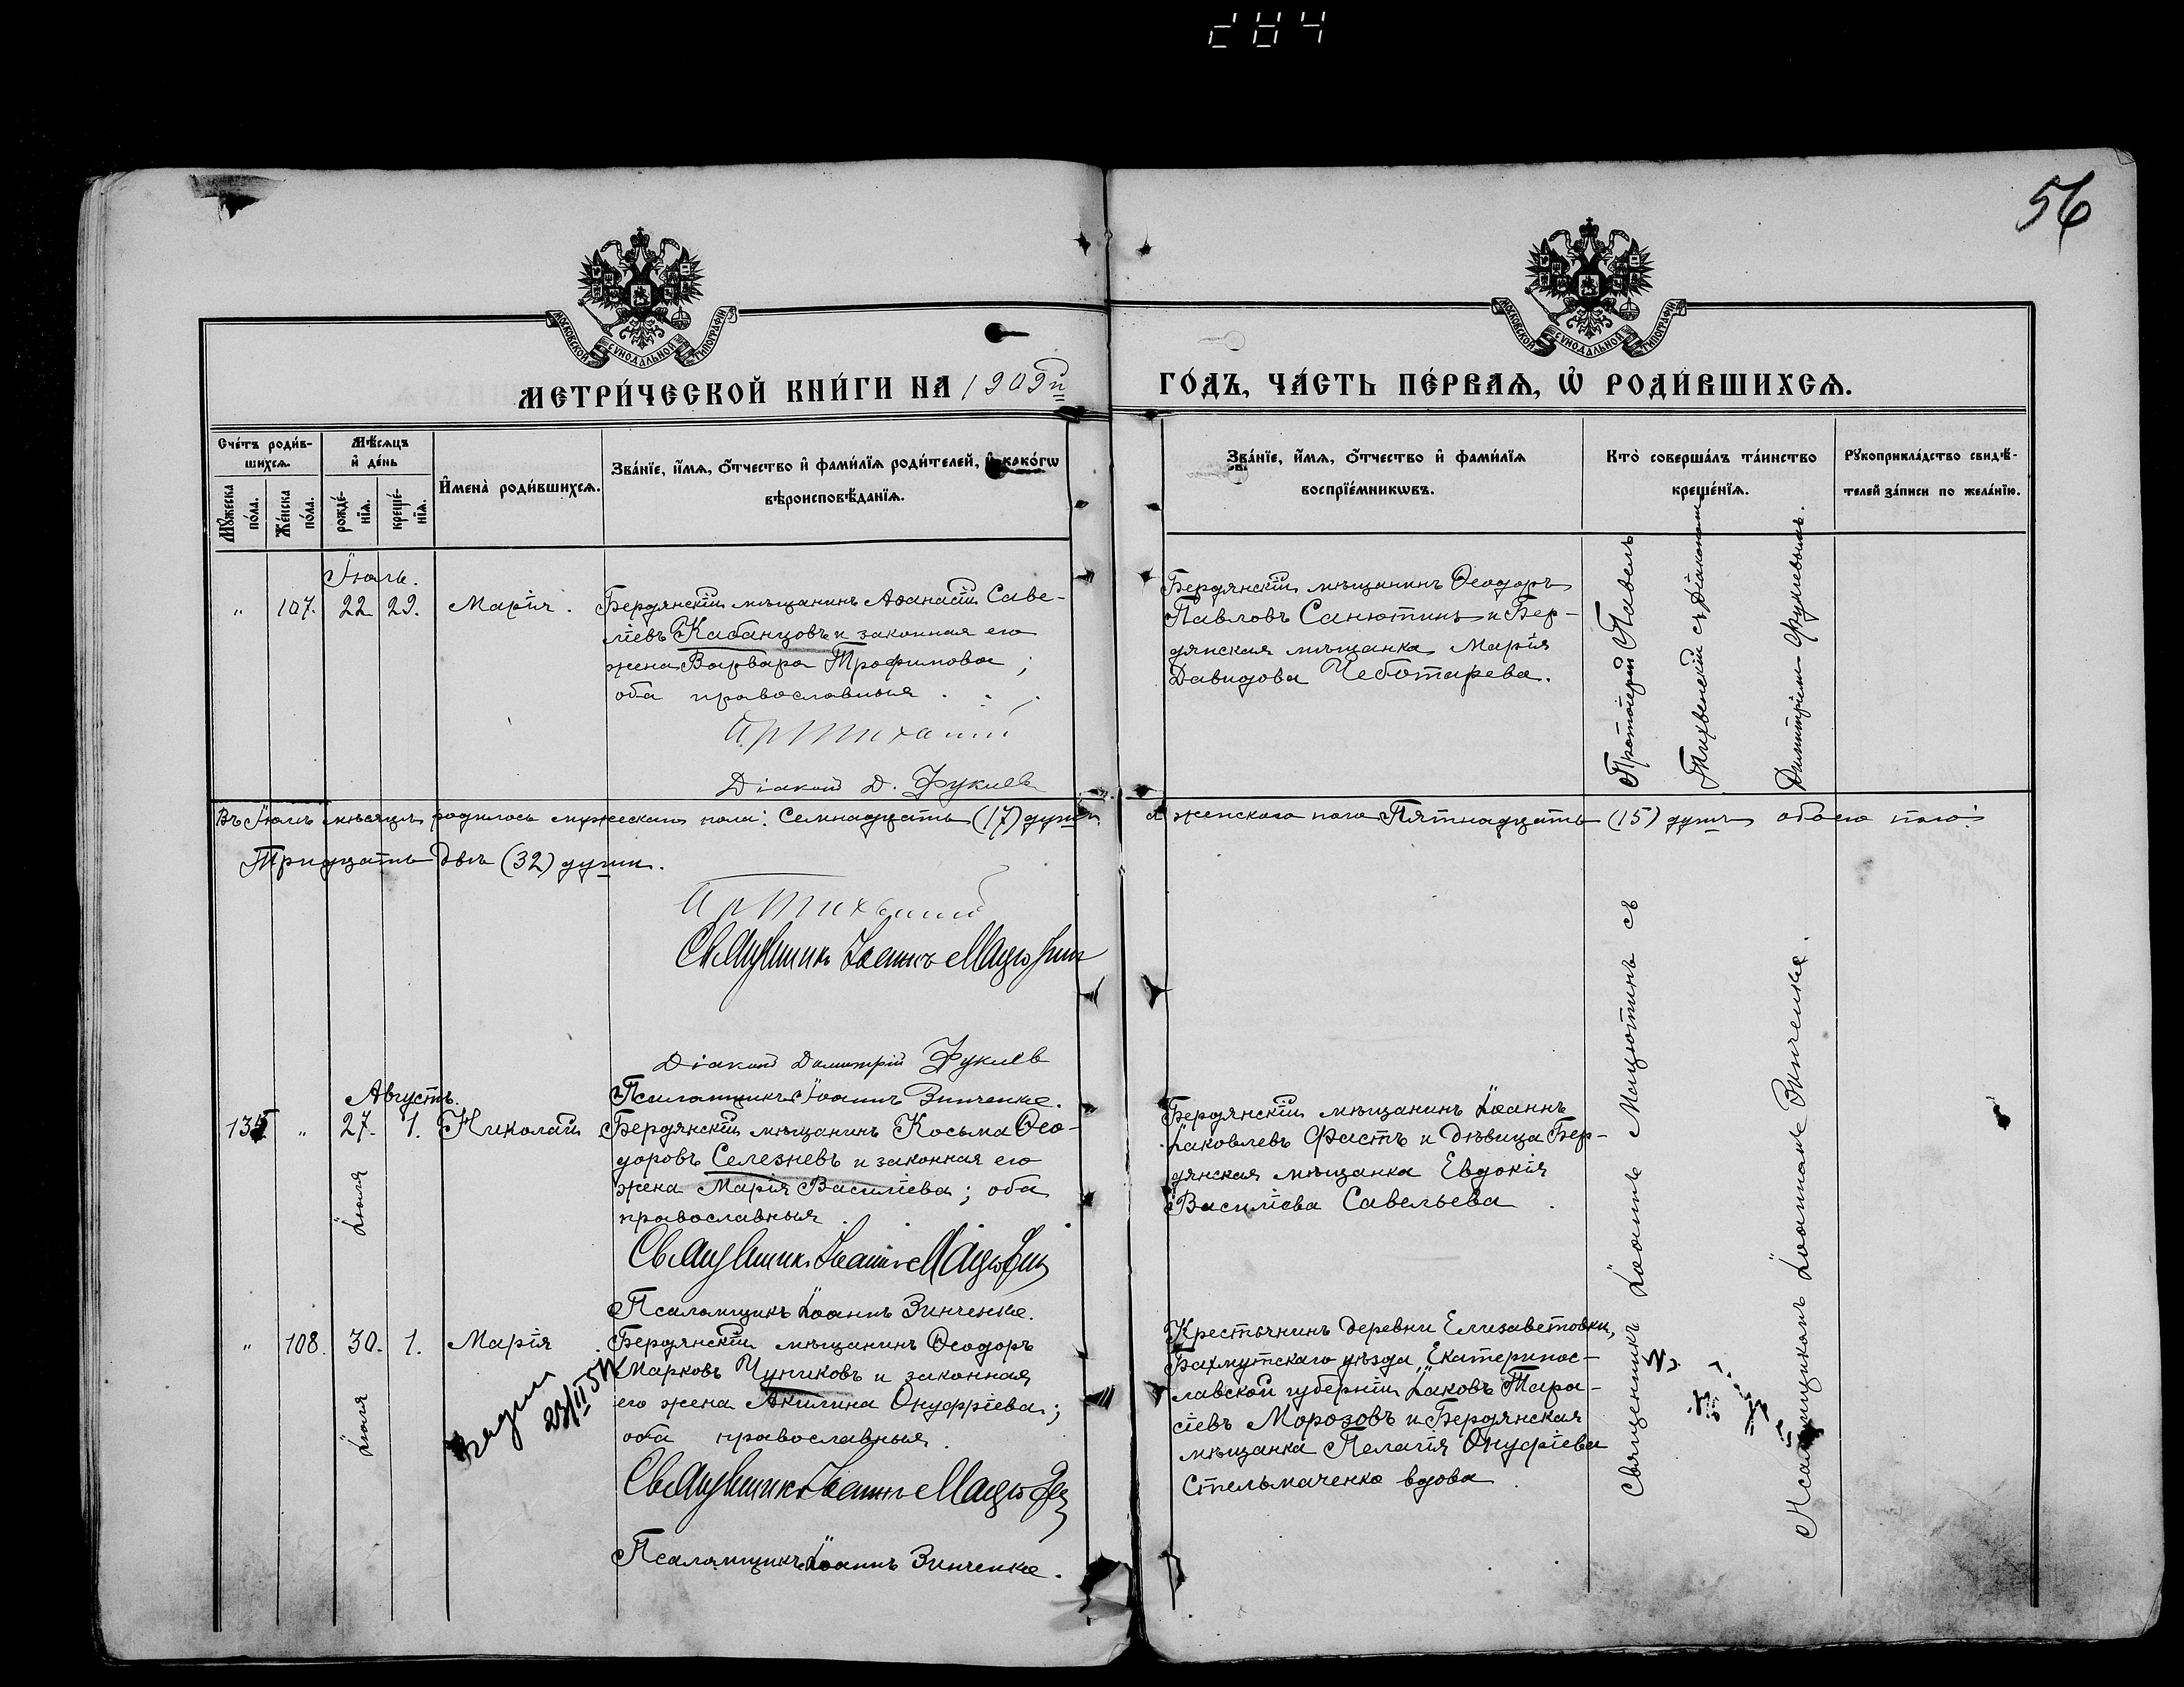 284
56
МОСКОВСКОЙ СѴНОДАЛЬНОЙ ТИПОГРАФІИ
МОСКОВСКОЙ СѴНОДАЛЬНОЙ ТИПОГРАФІИ
МЕТРИ́ЧЕСКОЙ КНИ́ГИ НА 1909й ГО́ДЪ, ЧА́СТЬ ПЕ́РВАѦ, Ѡ҆ РОДИ́ВШИХСѦ.
Сче́тъ роди́в-
шихсѧ.
Мꙋ́жеска по́ла.
Же́нска по́ла.
Мѣ́сѧцъ и҆ де́нь
рожде́-нїѧ.
креще́-нїѧ.
И҆мена̀ роди́вшихсѧ.
Зва́нїе, и҆́мѧ, о҆́тчество и҆ фами́лїѧ роди́телей, и҆ како́гѡ
вѣроисповѣ́данїѧ.
Зва́нїе, и҆́мѧ, о҆́тчество и҆ фами́лїѧ
воспрїе́мникѡвъ.
Кто̀ соверша́лъ та́инство
креще́нїѧ.
Рꙋкоприкла́дство свидѣ́-
телей за́писи по жела́нїю.
Іюль.
" 107. 22 29. Марія.
Бердянскій мѣщанинъ Аѳанасій Саве-
ліевъ Кабанцовъ и законная его
жена Варвара Трофимова;
оба православныя.
Пр Тихвинскій
Діаконъ Д. Фукиевъ
Бердянскій мѣщанинъ Ѳеодоръ
Павловъ Санютинъ и Бер-
дянская мѣщанка Марія
Давидова Чеботарева.
Протоіерей Павелъ
Тихвенскій съ Діакономъ
Димитріемъ
Въ Іюлѣ мѣсяцѣ родилось мужескаго пола: Семнадцать (17) душъ а женскаго пола Пятнадцать (15) душъ обоего пола:
Тридцать двѣ (32) души.
Пр Тихвинскій
Священникъ Іоаннъ Мацютин
Діаконъ Димитрій Фукиевъ
Псаломщикъ Іоаннъ Зинченко.
Августъ.
135. " 27. 1. Николай
Іюля
Бердянскій мѣщанинъ Косьма Ѳео-
доровъ Селезневъ и законная его
жена Марія Василіева; оба
православныя.
Священникъ Іоаннъ Мацютин
Псаломщикъ Іоаннъ Зинченко.
Бердянскій мѣщанинъ Іоаннъ
Іаковлевъ Фастъ и дѣвица Бер-
дянская мѣщанка Евдокія
Василіева Савельева.
" 108. 30. 1. Марія
Іюля
23/II 51
Бердянскій мѣщанинъ Ѳеодоръ
Марковъ Чуниковъ и законная
его жена Акилина Онуфріева;
оба православныя.
Священникъ Іоаннъ Мацютин
Псаломщикъ Іоаннъ Зинченко.
Крестьянинъ деревни Елизаветовки,
Бахмутскаго уѣзда, Екатеринос-
лавской губерніи Іаковъ Тара-
сіевъ Морозовъ и Бердянская
мѣщанка Пелагія Онуфріева
Стельмаченко вдова.
Священникъ Іоаннъ Мацютинъ съ
Псаломщикомъ Іоанномъ Зинченко.